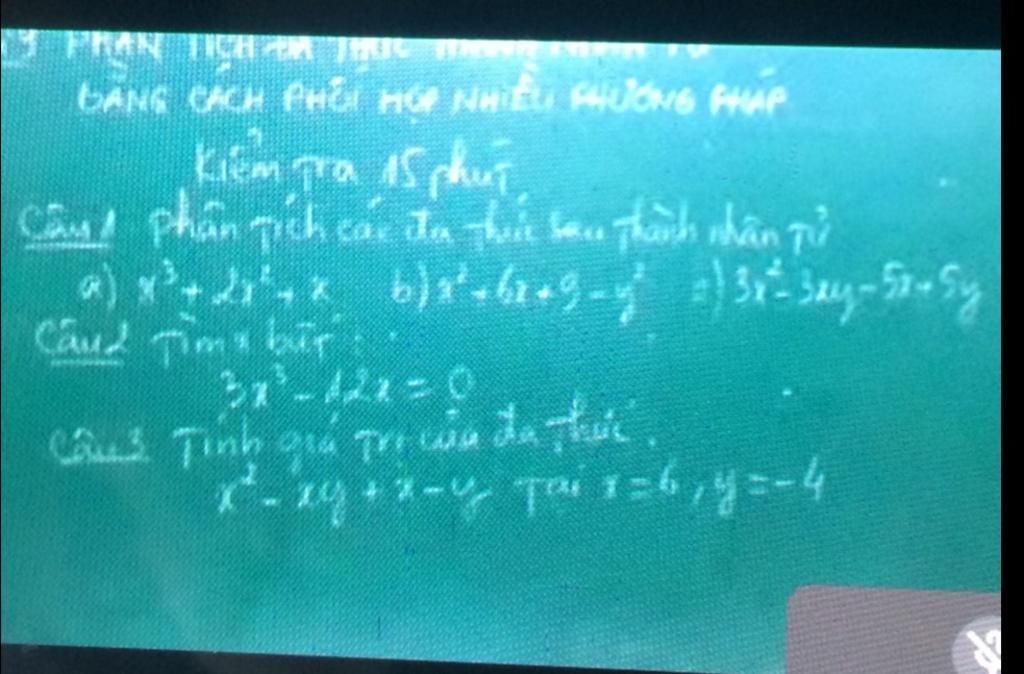 PHÂN TÍCH ĐA THỨC THÀNH NHÂN TỬ
BẰNG CÁCH PHỐI HỢP NHIỀU PHƯƠNG PHÁP
Kiểm tra 15 phút
Câu 1 phân tích các đa thức sau thành nhân tử
a) x³ + 2x² + x b) x² + 6x + 9 - y² c) 3x² - 3xy - 5x + 5y
Câu 2 Tìm x biết :
3x³ - 12x = 0
Câu 3 Tính giá trị của đa thức.
x² - xy + x - y Tại x = 6, y = -4